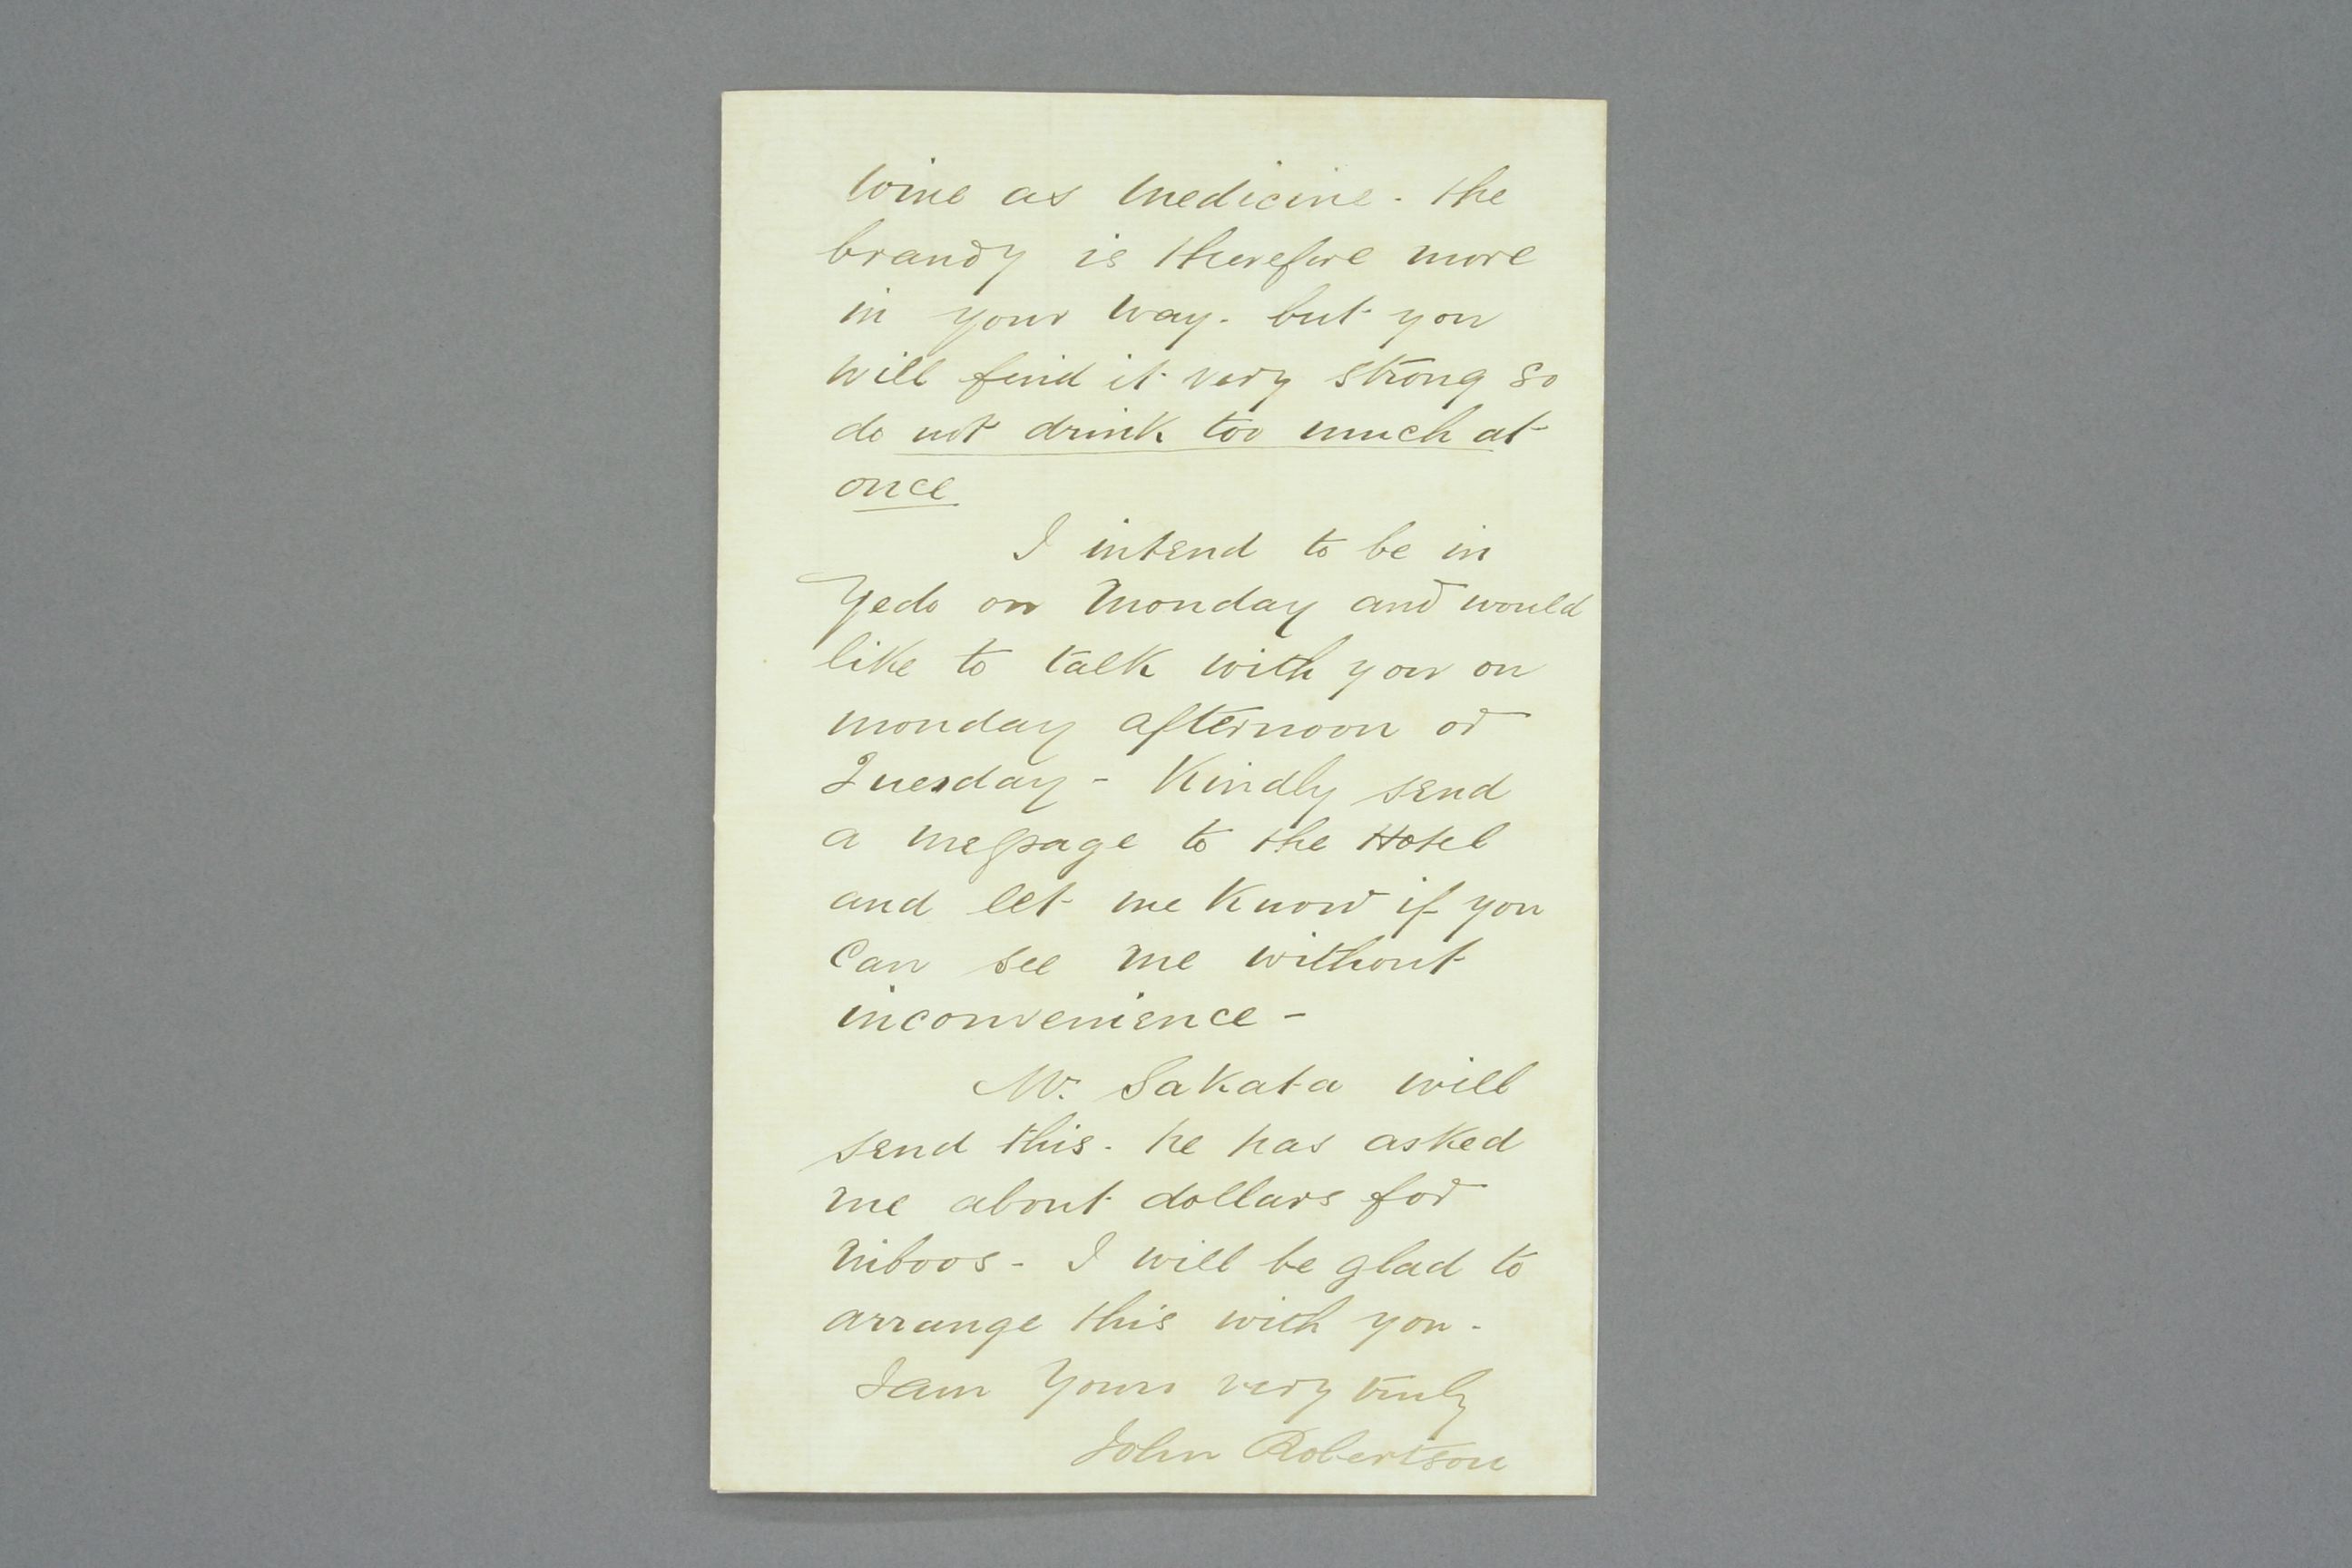 wine as medicine - the
brandy is therefore more
in your way - but you
will find it very strong so
do not drink too much at
once
I intend to be in
Yedo on Monday and would
like to talk with you on
monday afternoon or
Tuesday - Kindly send
a message to the Hotel
and let me know if you
can see me without
inconvenience -
Mr. Sakata will
send this - he has asked
me about dollars for
niboos - I will be glad to
arrange this with you -
I am Yours very truly
John Robertson